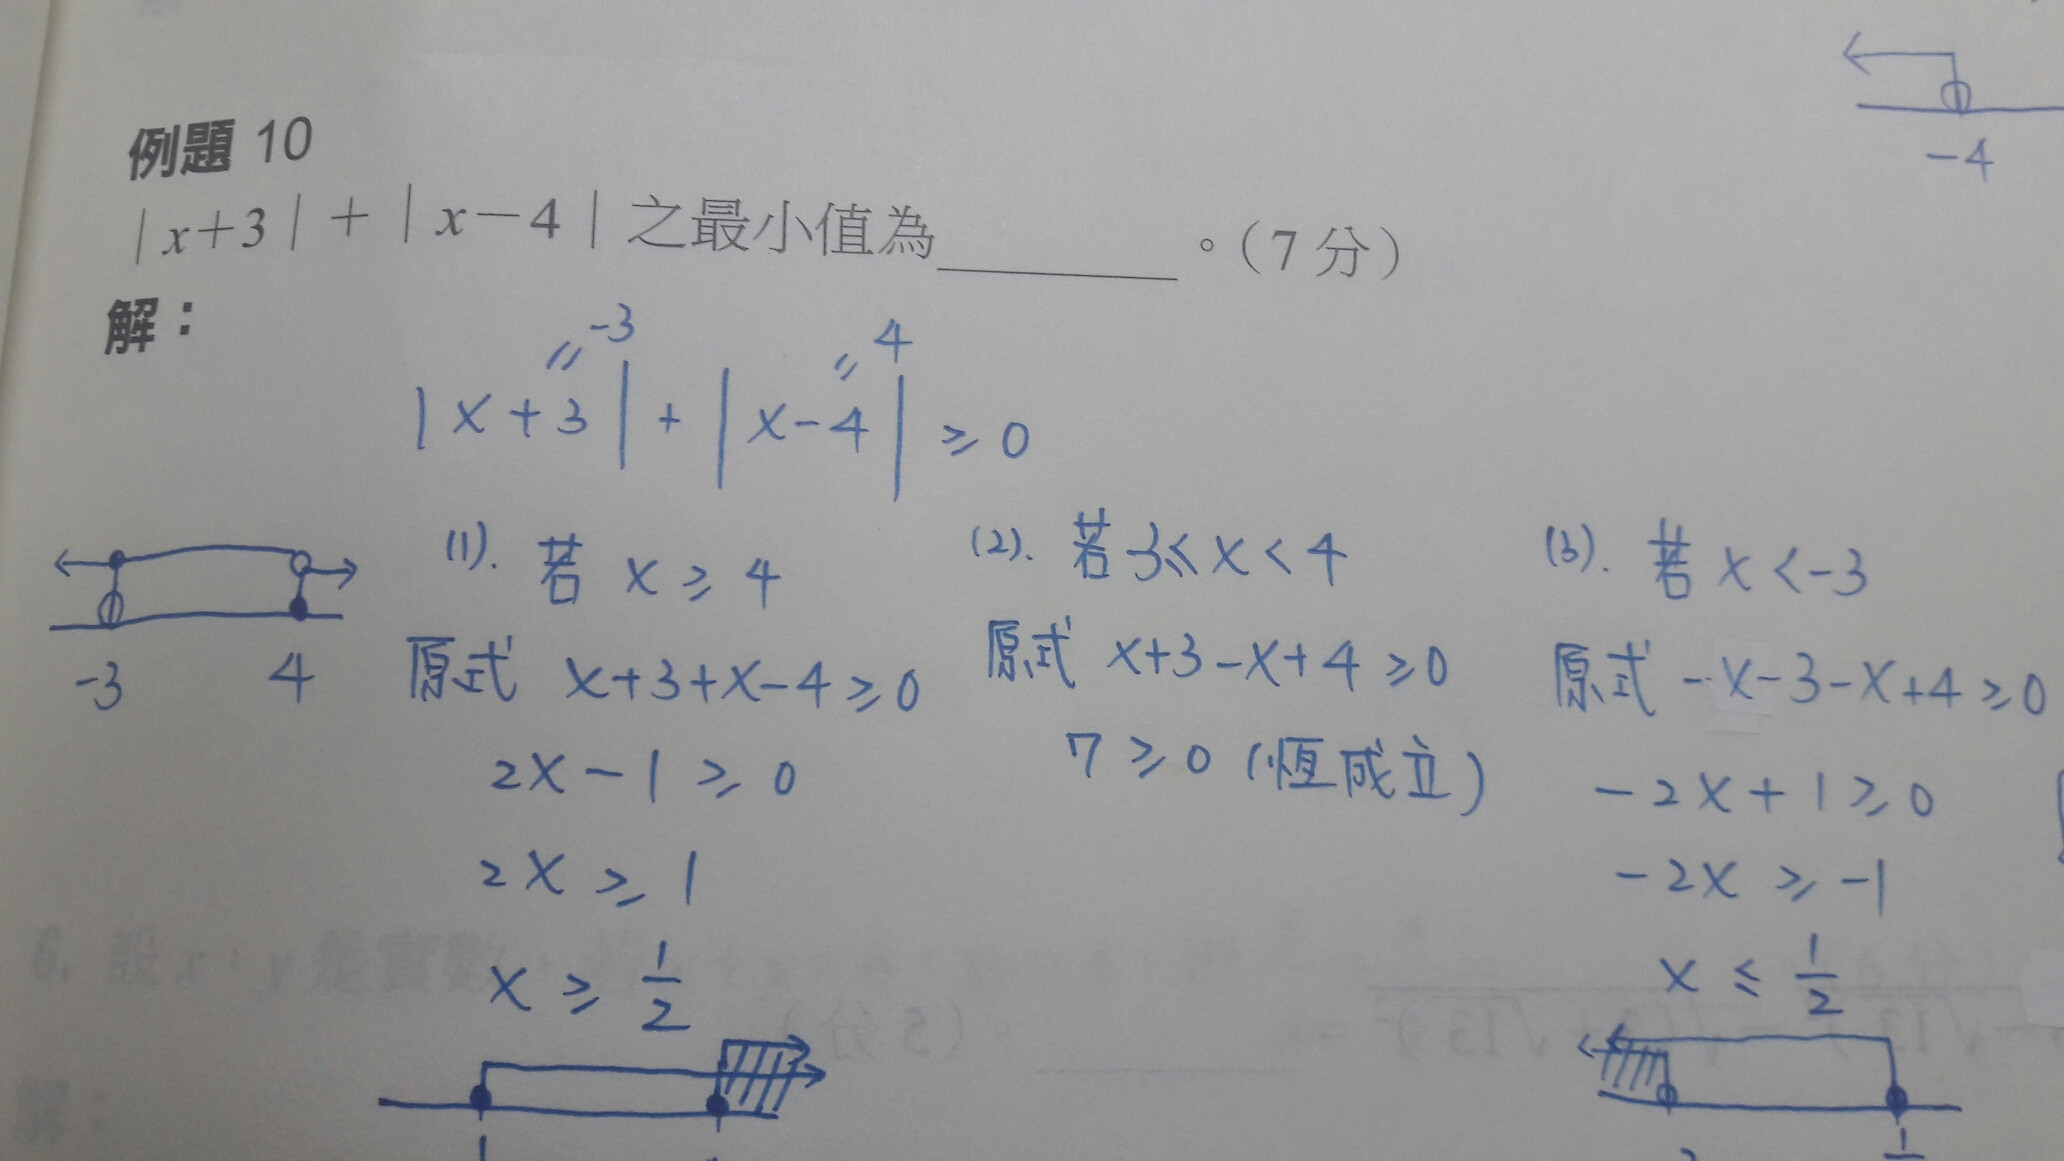 例題 10
|x+3|+|x-4|之最小值為______。(7分)
解：
-3 4
|x+3|+|x-4|≥0
(1). 若 x≥4
原式 x+3+x-4≥0
2x-1≥0
2x≥1
x≥1/2
(2). 若-3≤x<4
原式 x+3-x+4≥0
7≥0 (恆成立)
(3). 若 x<-3
原式 -x-3-x+4≥0
-2x+1≥0
-2x≥-1
x≤1/2
-3 4
-4
6. 設x、y是實數
(5分)
解：